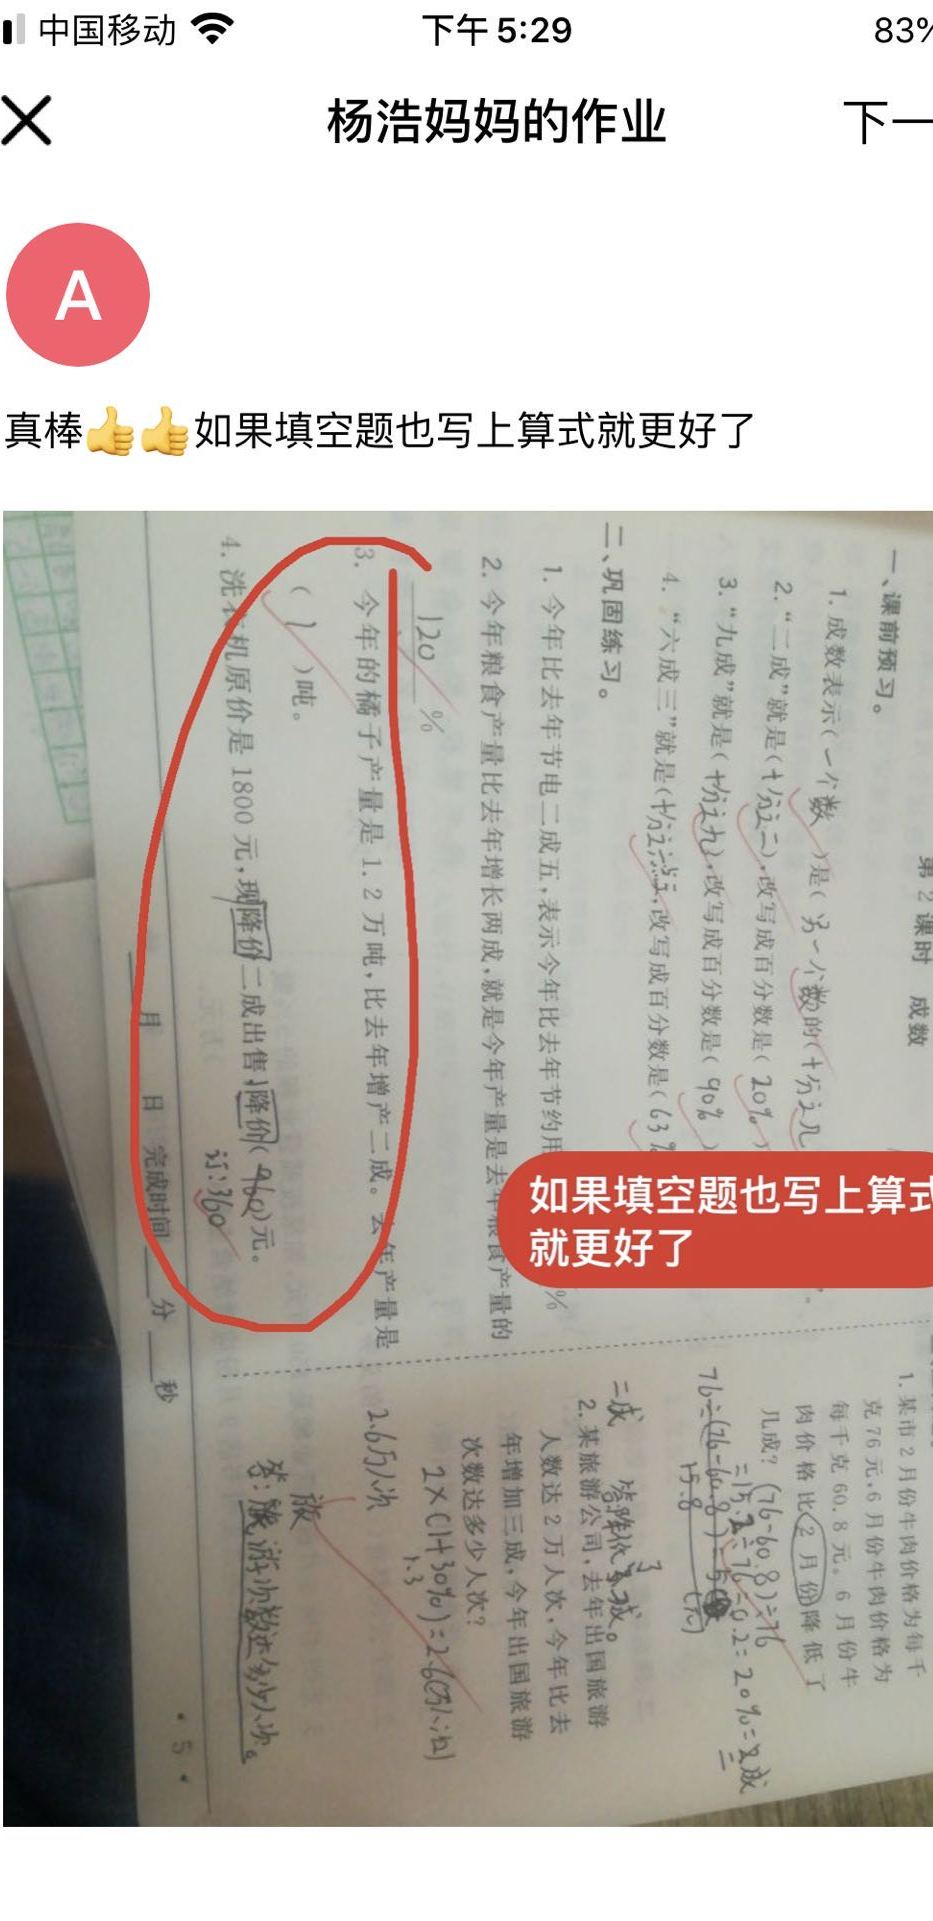 中国移动
下午5:29
83%
杨浩妈妈的作业
下一
A
真棒👍👍如果填空题也写上算式就更好了
第2课时 成数
一、课前预习。
1. 成数表示(一个数)是(另一个数)的(十分之几
2. “二成”就是(十分之二),改写成百分数是(20%)
3. “九成”就是(十分之九),改写成百分数是(90%)
4. “六成三”就是(十分之六点三),改写成百分数是(63%
二、巩固练习。
1. 今年比去年节电二成五,表示今年比去年节约用
%
2. 今年粮食产量比去年增长两成,就是今年产量是去年粮食产量的
120%
3. 今年的橘子产量是1.2万吨,比去年增产二成。去年产量是
(1)吨。
4. 洗衣机原价是1800元,现降价二成出售,降价(960)元。
订:360
月 日 完成时间 分 秒
如果填空题也写上算式
就更好了
1. 某市2月份牛肉价格为每千
克76元,6月份牛肉价格为
每千克60.8元。6月份牛
肉价格比2月份降低了
几成?
(76-60.8)÷76
=15.2÷76=0.2=20%=二成
二成
2. 某旅游公司,去年出国旅游
人数达2万人次,今年比去
年增加三成,今年出国旅游
次数达多少人次?
2×(1+30%)=2.6(万人次)
1.3
2.6万人次
·5·